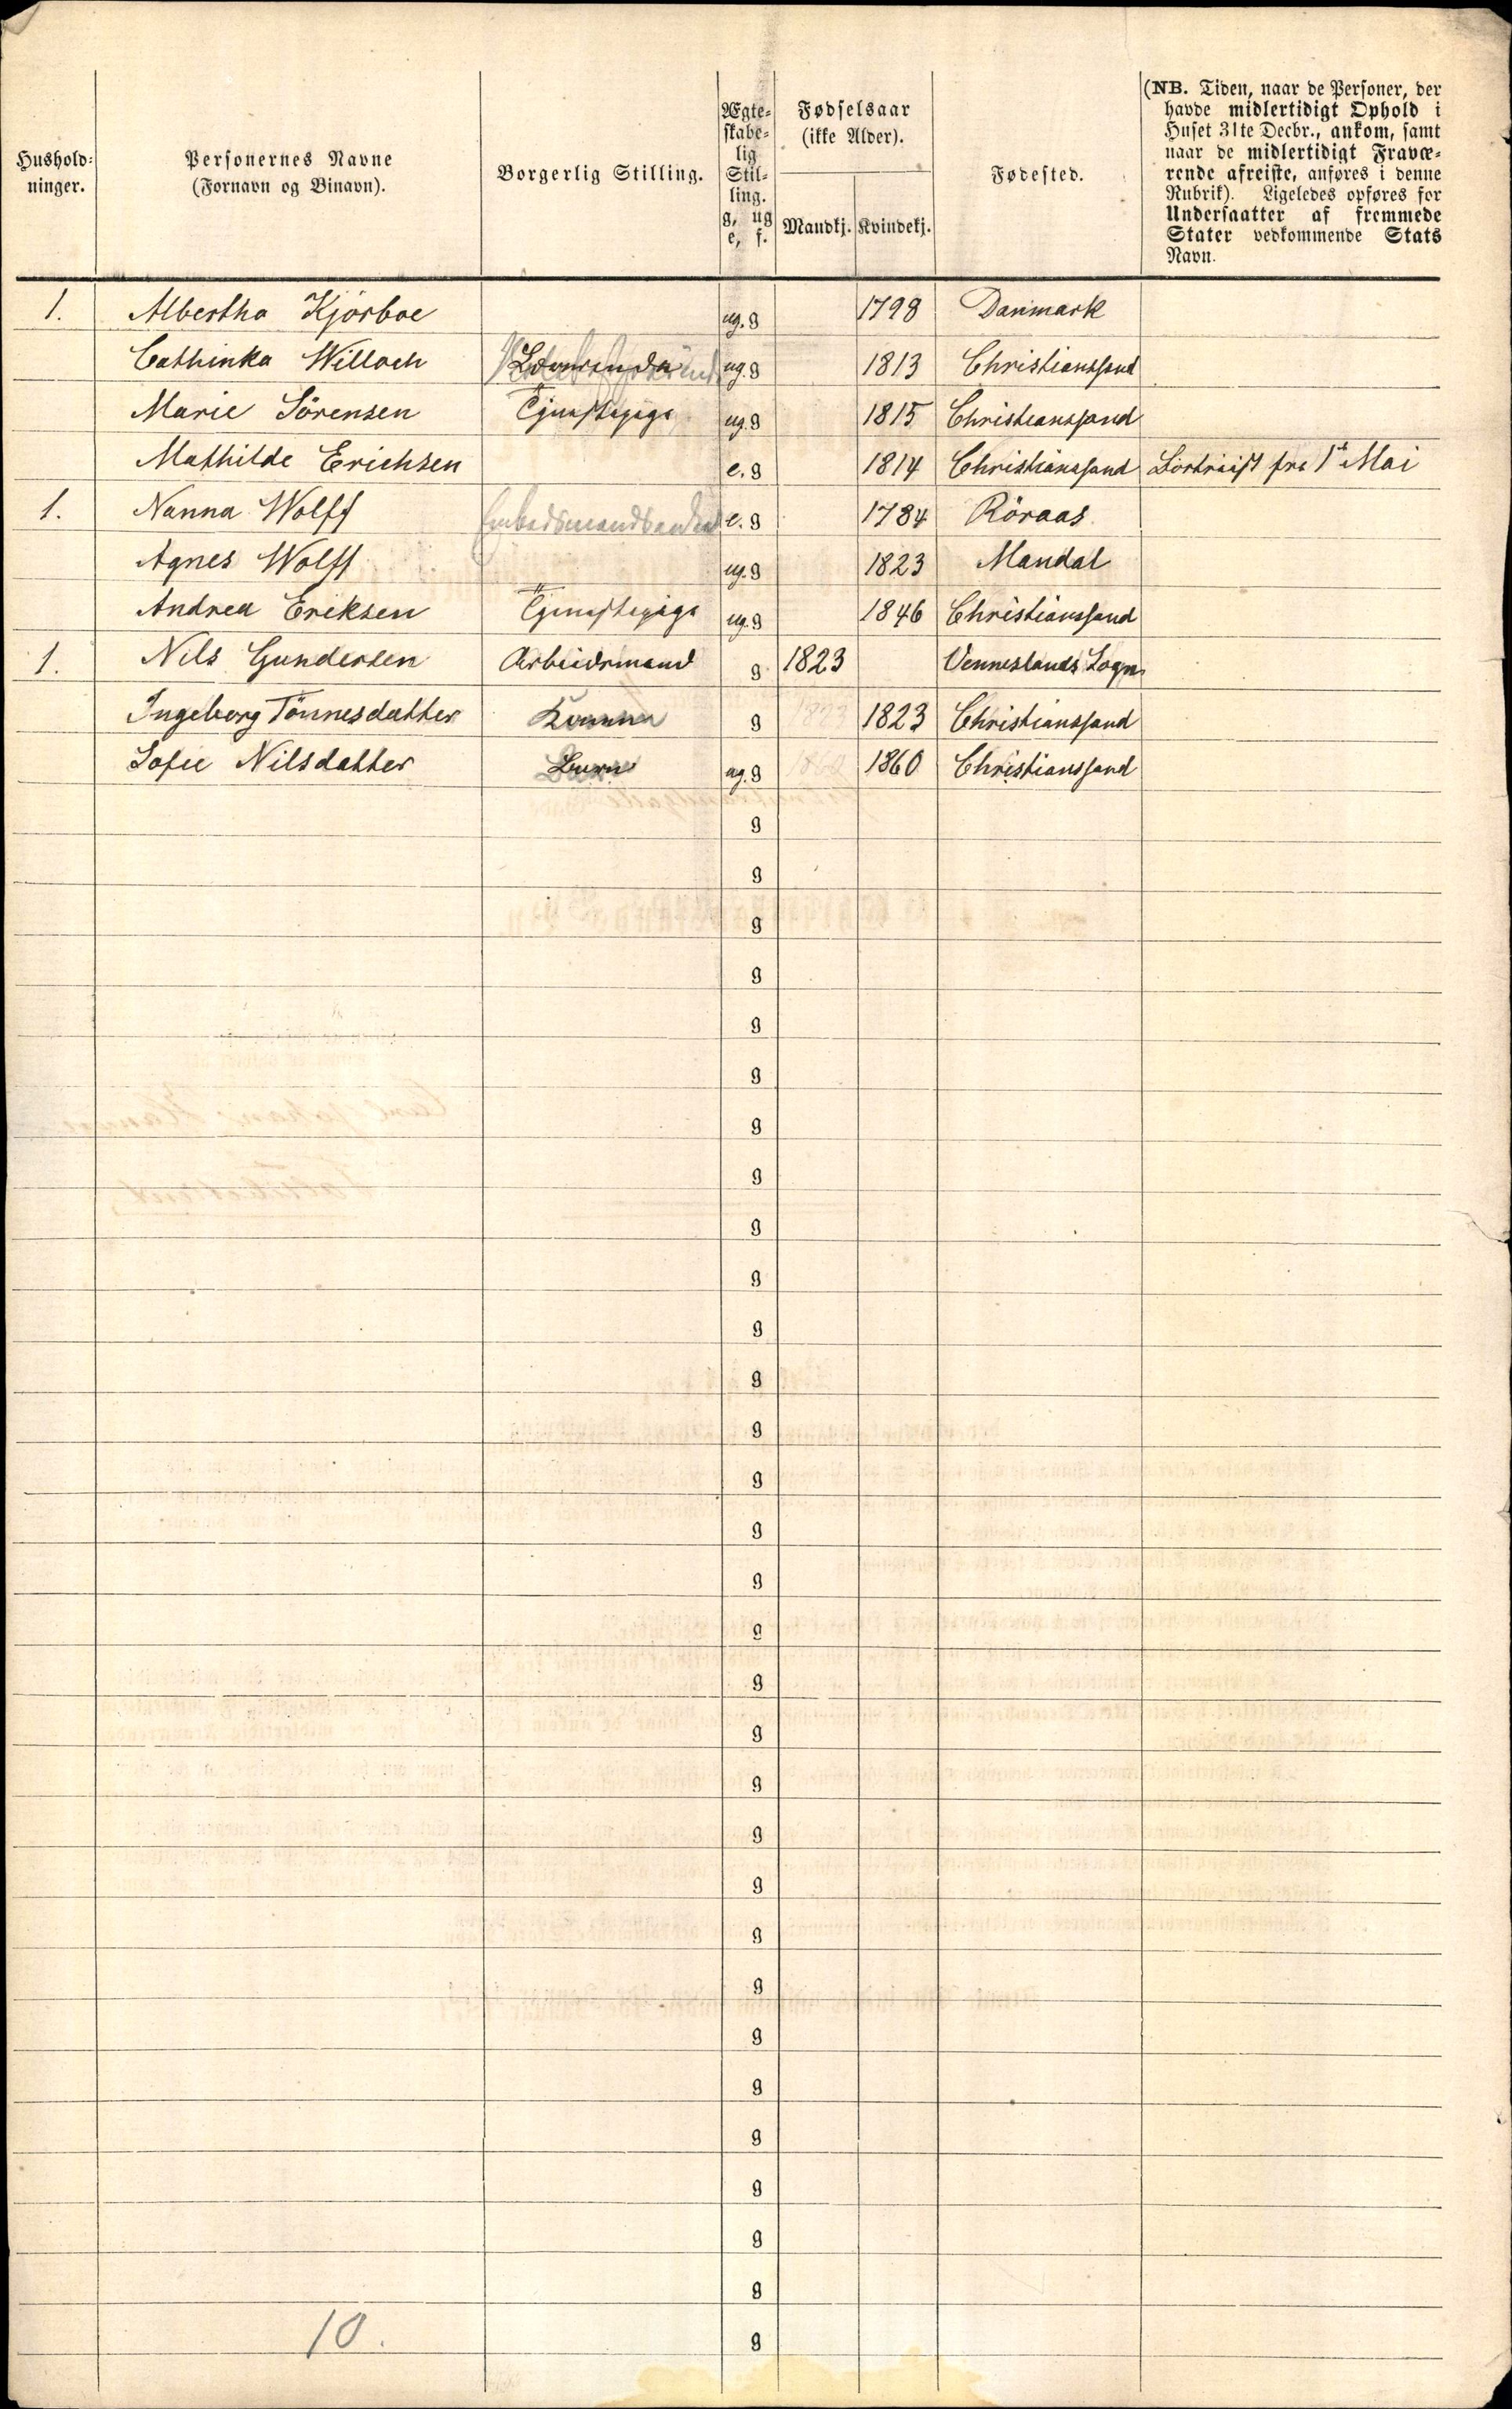 Hushold-
ninger.
Personernes Navne
(Fornavn og Binavn).
Borgerlig Stilling.
Ægte-
skabe-
lig
Stil-
ling.
g, ug
e, f.
Fødselsaar
(ikke Alder).
Mandkj.
Kvindekj.
Fødested.
(NB. Tiden, naar de Personer, der
havde midlertidigt Ophold i
Huset 31te Decbr., ankom, samt
naar de midlertidigt Fravæ-
rende afreiste, anføres i denne
Rubrik). Ligeledes opføres for
Undersaatter af fremmede
Stater vedkommende Stats
Navn.
1. Albertha Kjørboe ug. g 1798 Danmark
Cathinka Willoch ug. g 1813 Christianssand
Marie Sörensen Tjenestepige ug. g 1815 Christianssand
Mathilde Erichsen e. g 1814 Christianssand Bortreist fra 1ste Mai
1. Nanna Wolff Embedsmandsenke e. g 1784 Röraas
Agnes Wolff ug. g 1823 Mandal
Andrea Eriksen Tjenestepige ug. g 1846 Christianssand
1. Nils Gundersen Arbeidsmand g 1823 Venneslands Sogn
Ingeborg Tönnesdatter Konna g 1823 1823 Christianssand
Sofie Nilsdatter Barn ug. g 1860 1860 Christianssand
g
g
g
g
g
g
g
g
g
g
g
g
g
g
g
g
g
g
g
g
g
g
g
g
g
g
g
g
g
g
10. g